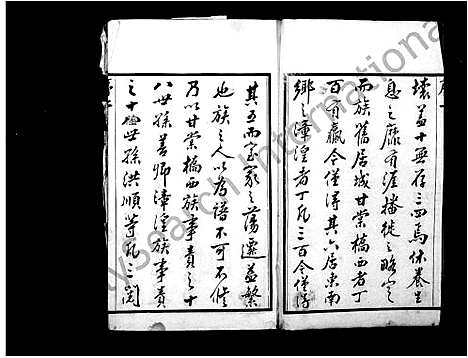 壞蓋十無存三四焉休養生
息之靡有涯播徙之略定
而族舊居城甘棠橋西者丁
百有贏今僅得其六居東南
鄉之漳湟者丁凡三百今僅得
其五而家之蕩遷益繁
也族之人以為譜不可不修
乃以甘棠橋西族事責之十
八世孫善卿漳湟族事責
之十世孫洪順等凡三閱
ysearch International